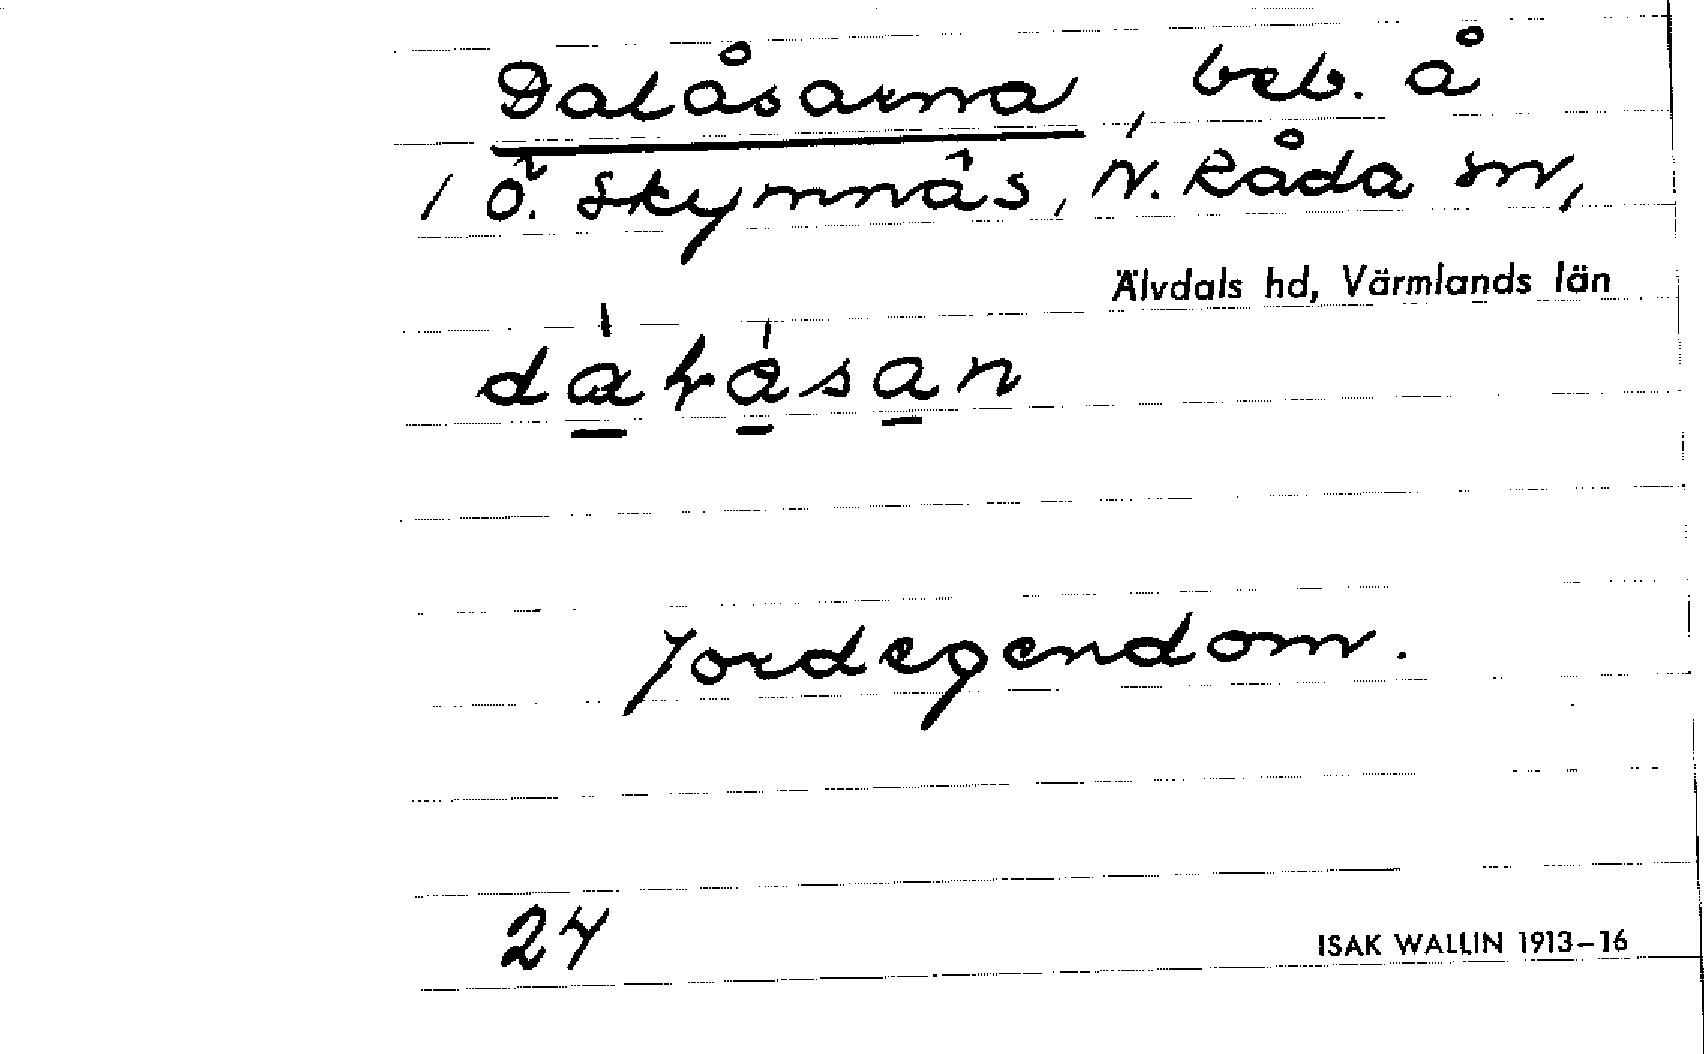 Dalåsarna, beb. å
/ Ö. Skymnäs, N. Råda sn,
Älvdals hd, Värmlands län
Jordegendom.
24
ISAK WALLIN 1913–16